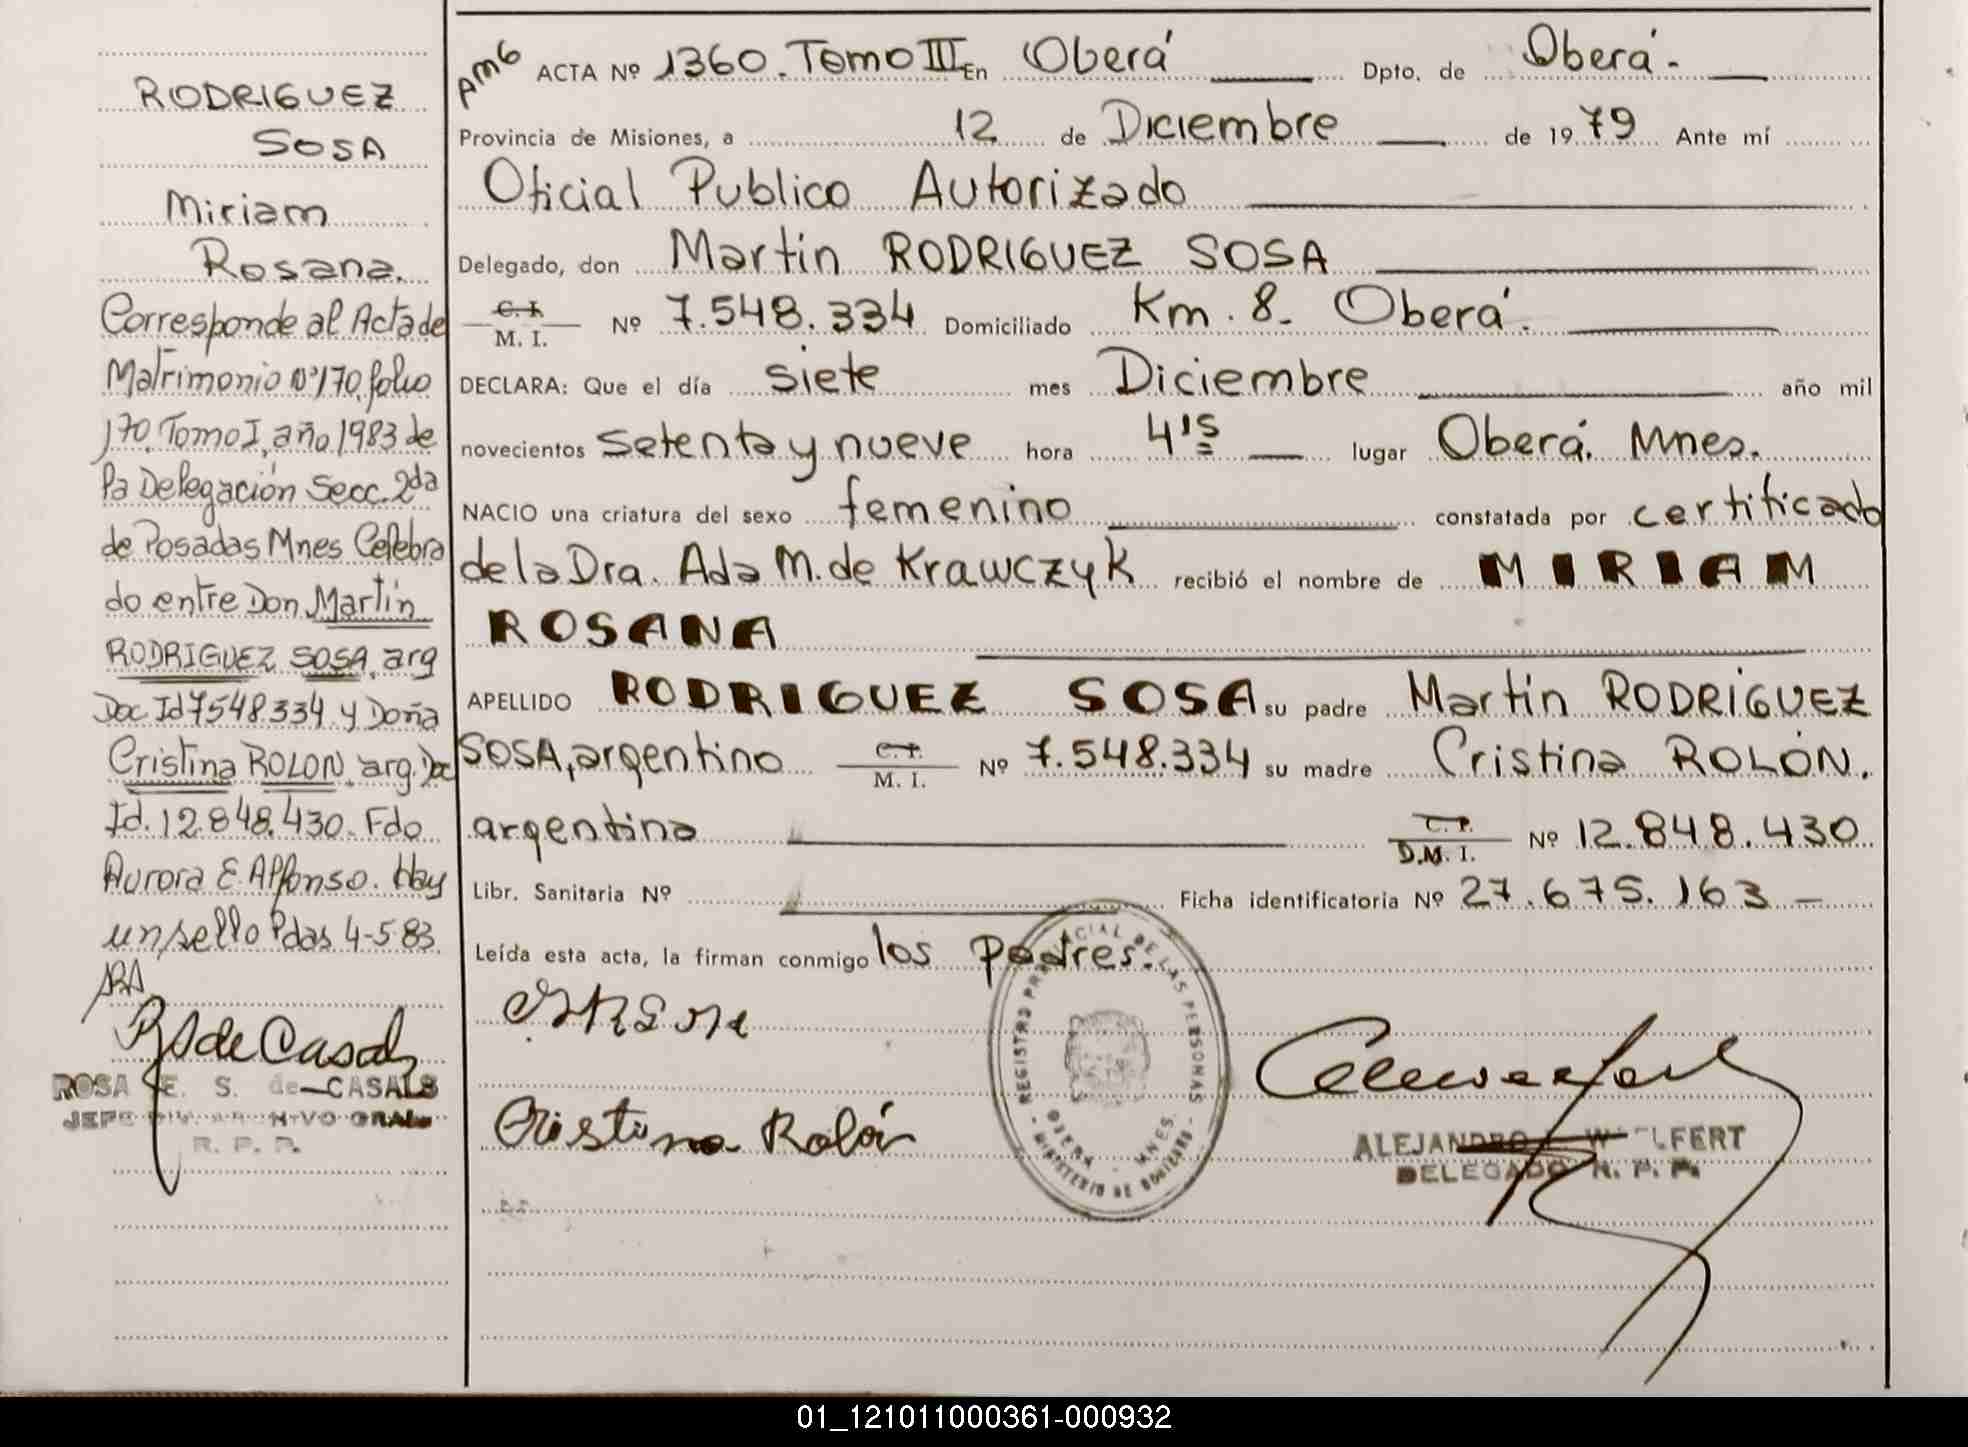 RODRIGUEZ
SOSA
Miriam
Rosana.
Corresponde al Acta de
Matrimonio Nº 170, folio
170. Tomo I, año 1983 de
la Delegación Secc. 2da
de Posadas Mnes Celebra
do entre Don Martin
RODRIGUEZ SOSA, arg
Doc Id 7548.334 y Doña
Cristina ROLON, arg. Doc
Id. 12.848.430. Fdo
Aurora E. Alfonso. Hay
un sello Pdas 4-5-83.
RS de Casals
ROSA E. S. de CASALS
JEFE DIV. ARCHIVO GRAL.
R. P. P.
AMG ACTA Nº 1360. Tomo III En Oberá Dpto. de Oberá.
Provincia de Misiones, a 12 de Diciembre de 1979 Ante mí
Oficial Publico Autorizado
Delegado, don Martin RODRIGUEZ SOSA
C. I.
M. I. Nº 7.548.334 Domiciliado Km. 8. Oberá.
DECLARA: Que el día siete mes Diciembre año mil
novecientos setenta y nueve hora 4'15 lugar Oberá. Mnes.
NACIO una criatura del sexo femenino constatada por certificado
de la Dra. Ada M. de Krawczyk recibió el nombre de MIRIAM
ROSANA
APELLIDO RODRIGUEZ SOSA su padre Martin RODRIGUEZ
SOSA, argentino C. I. M. I. Nº 7.548.334 su madre Cristina ROLÓN.
argentina C. I. D.M. I. Nº 12.848.430
Libr. Sanitaria Nº Ficha identificatoria Nº 27.675.163
Leída esta acta, la firman conmigo los padres.
Cristina Rolón
REGISTRO PROVINCIAL DE LAS PERSONAS
OBERA - MNES.
MINISTERIO DE GOBIERNO
ALEJANDRO WOELFERT
DELEGADO R. P. P.
01_121011000361-000932